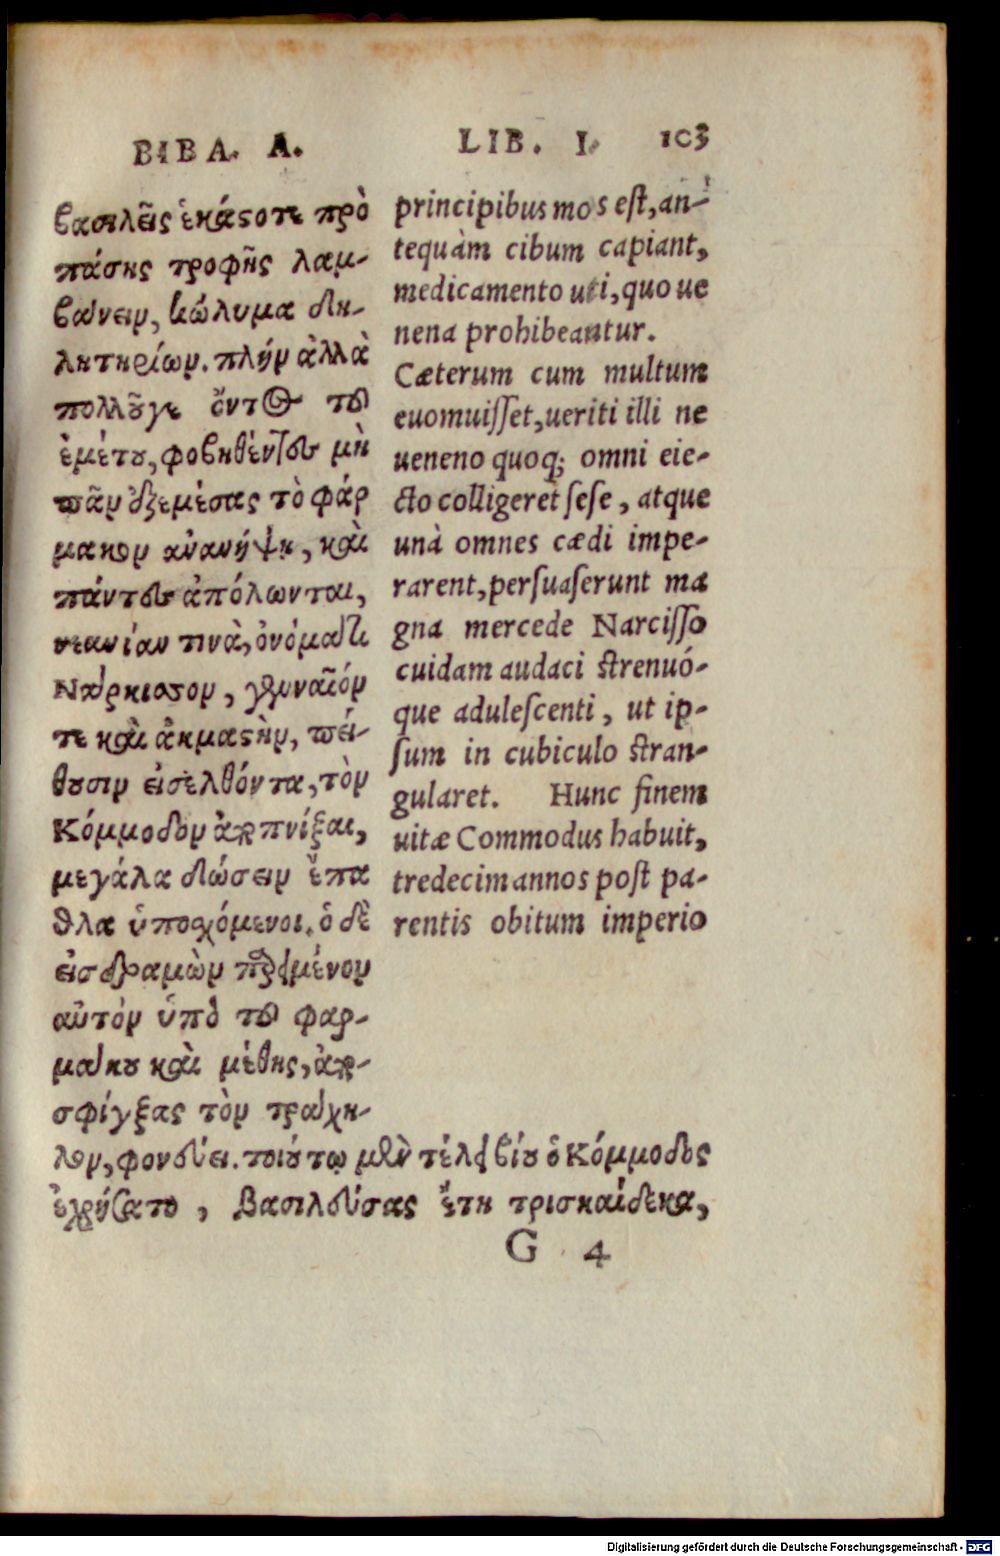 ΒΙΒΛ. Α.
βασιλεῖς ἑκάστοτε πρὸ
πάσης τροφῆς λαμ-
βάνειν, κώλυμα δη-
λητηρίων. πλὴν ἀλλὰ
πολλοῦγε ὄντος τοῦ
ἐμέτου, φοβηθέντες μὴ
πᾶν ἐξεμέσας τὸ φάρ
μακον ἀνανήψῃ, καὶ
πάντες ἀπόλωνται,
νεανίαν τινὰ, ὀνόματι
Νάρκισσον, γενναῖόν
τε καὶ ἀκμαστὴν, πεί-
θουσιν εἰσελθόντα, τὸν
Κόμμοδον ἀποπνίξαι,
μεγάλα δώσειν ἔπα
θλα ὑποσχόμενοι. ὁ δὲ
εἰσδραμὼν παρειμένον
αὐτὸν ὑπὸ τοῦ φαρ-
μάκου καὶ μέθης, ἀπο-
σφίγξας τὸν τράχη-
λον, φονεύει. τοιούτῳ μὲν τέλει βίου ὁ Κόμμοδος
ἐχρήσατο, βασιλεύσας ἔτη τρισκαίδεκα,
LIB. I. 103
principibus mos est, an-
tequàm cibum capiant,
medicamento uti, quo ue
nena prohibeantur.
Cæterum cum multum
euomuisset, ueriti illi ne
ueneno quoq; omni eie-
cto colligeret sese, atque
unà omnes cædi impe-
rarent, persuaserunt ma
gna mercede Narcisso
cuidam audaci strenuó-
que adulescenti, ut ip-
sum in cubiculo stran-
gularet. Hunc finem
uitæ Commodus habuit,
tredecim annos post pa-
rentis obitum imperio
G 4
Digitalisierung gefördert durch die Deutsche Forschungsgemeinschaft - DFG